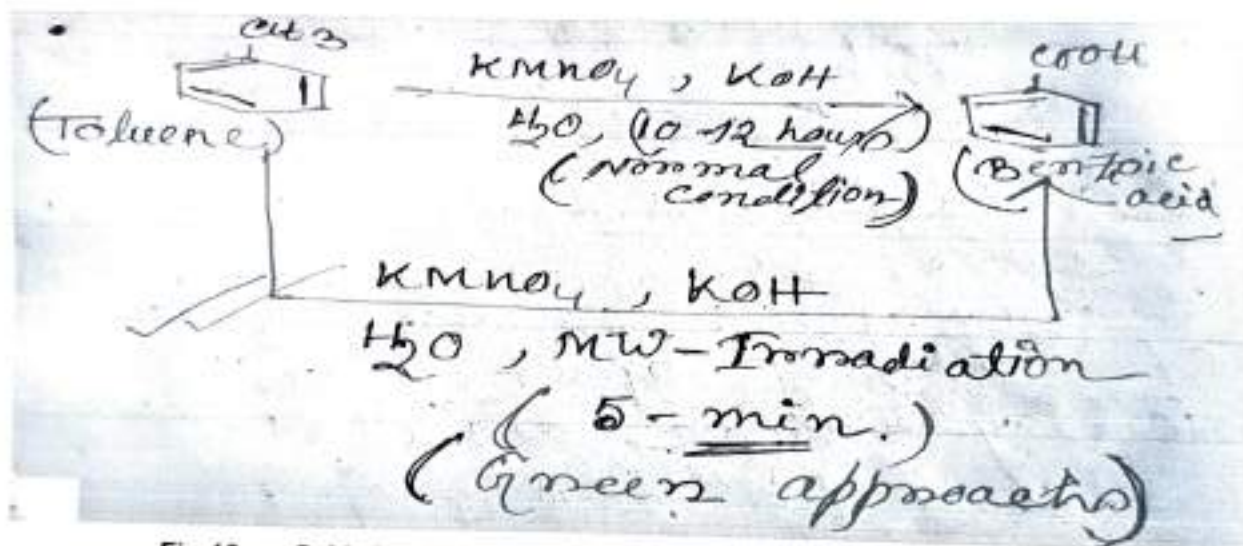 CH3
(Toluene)
KMnO4 , KOH
H2O, (10-12 hours)
(Normal
condition)
COOH
(Benzoic
acid
KMnO4 , KOH
H2O , MW-Irradiation
( 5-min.)
(Green approach)